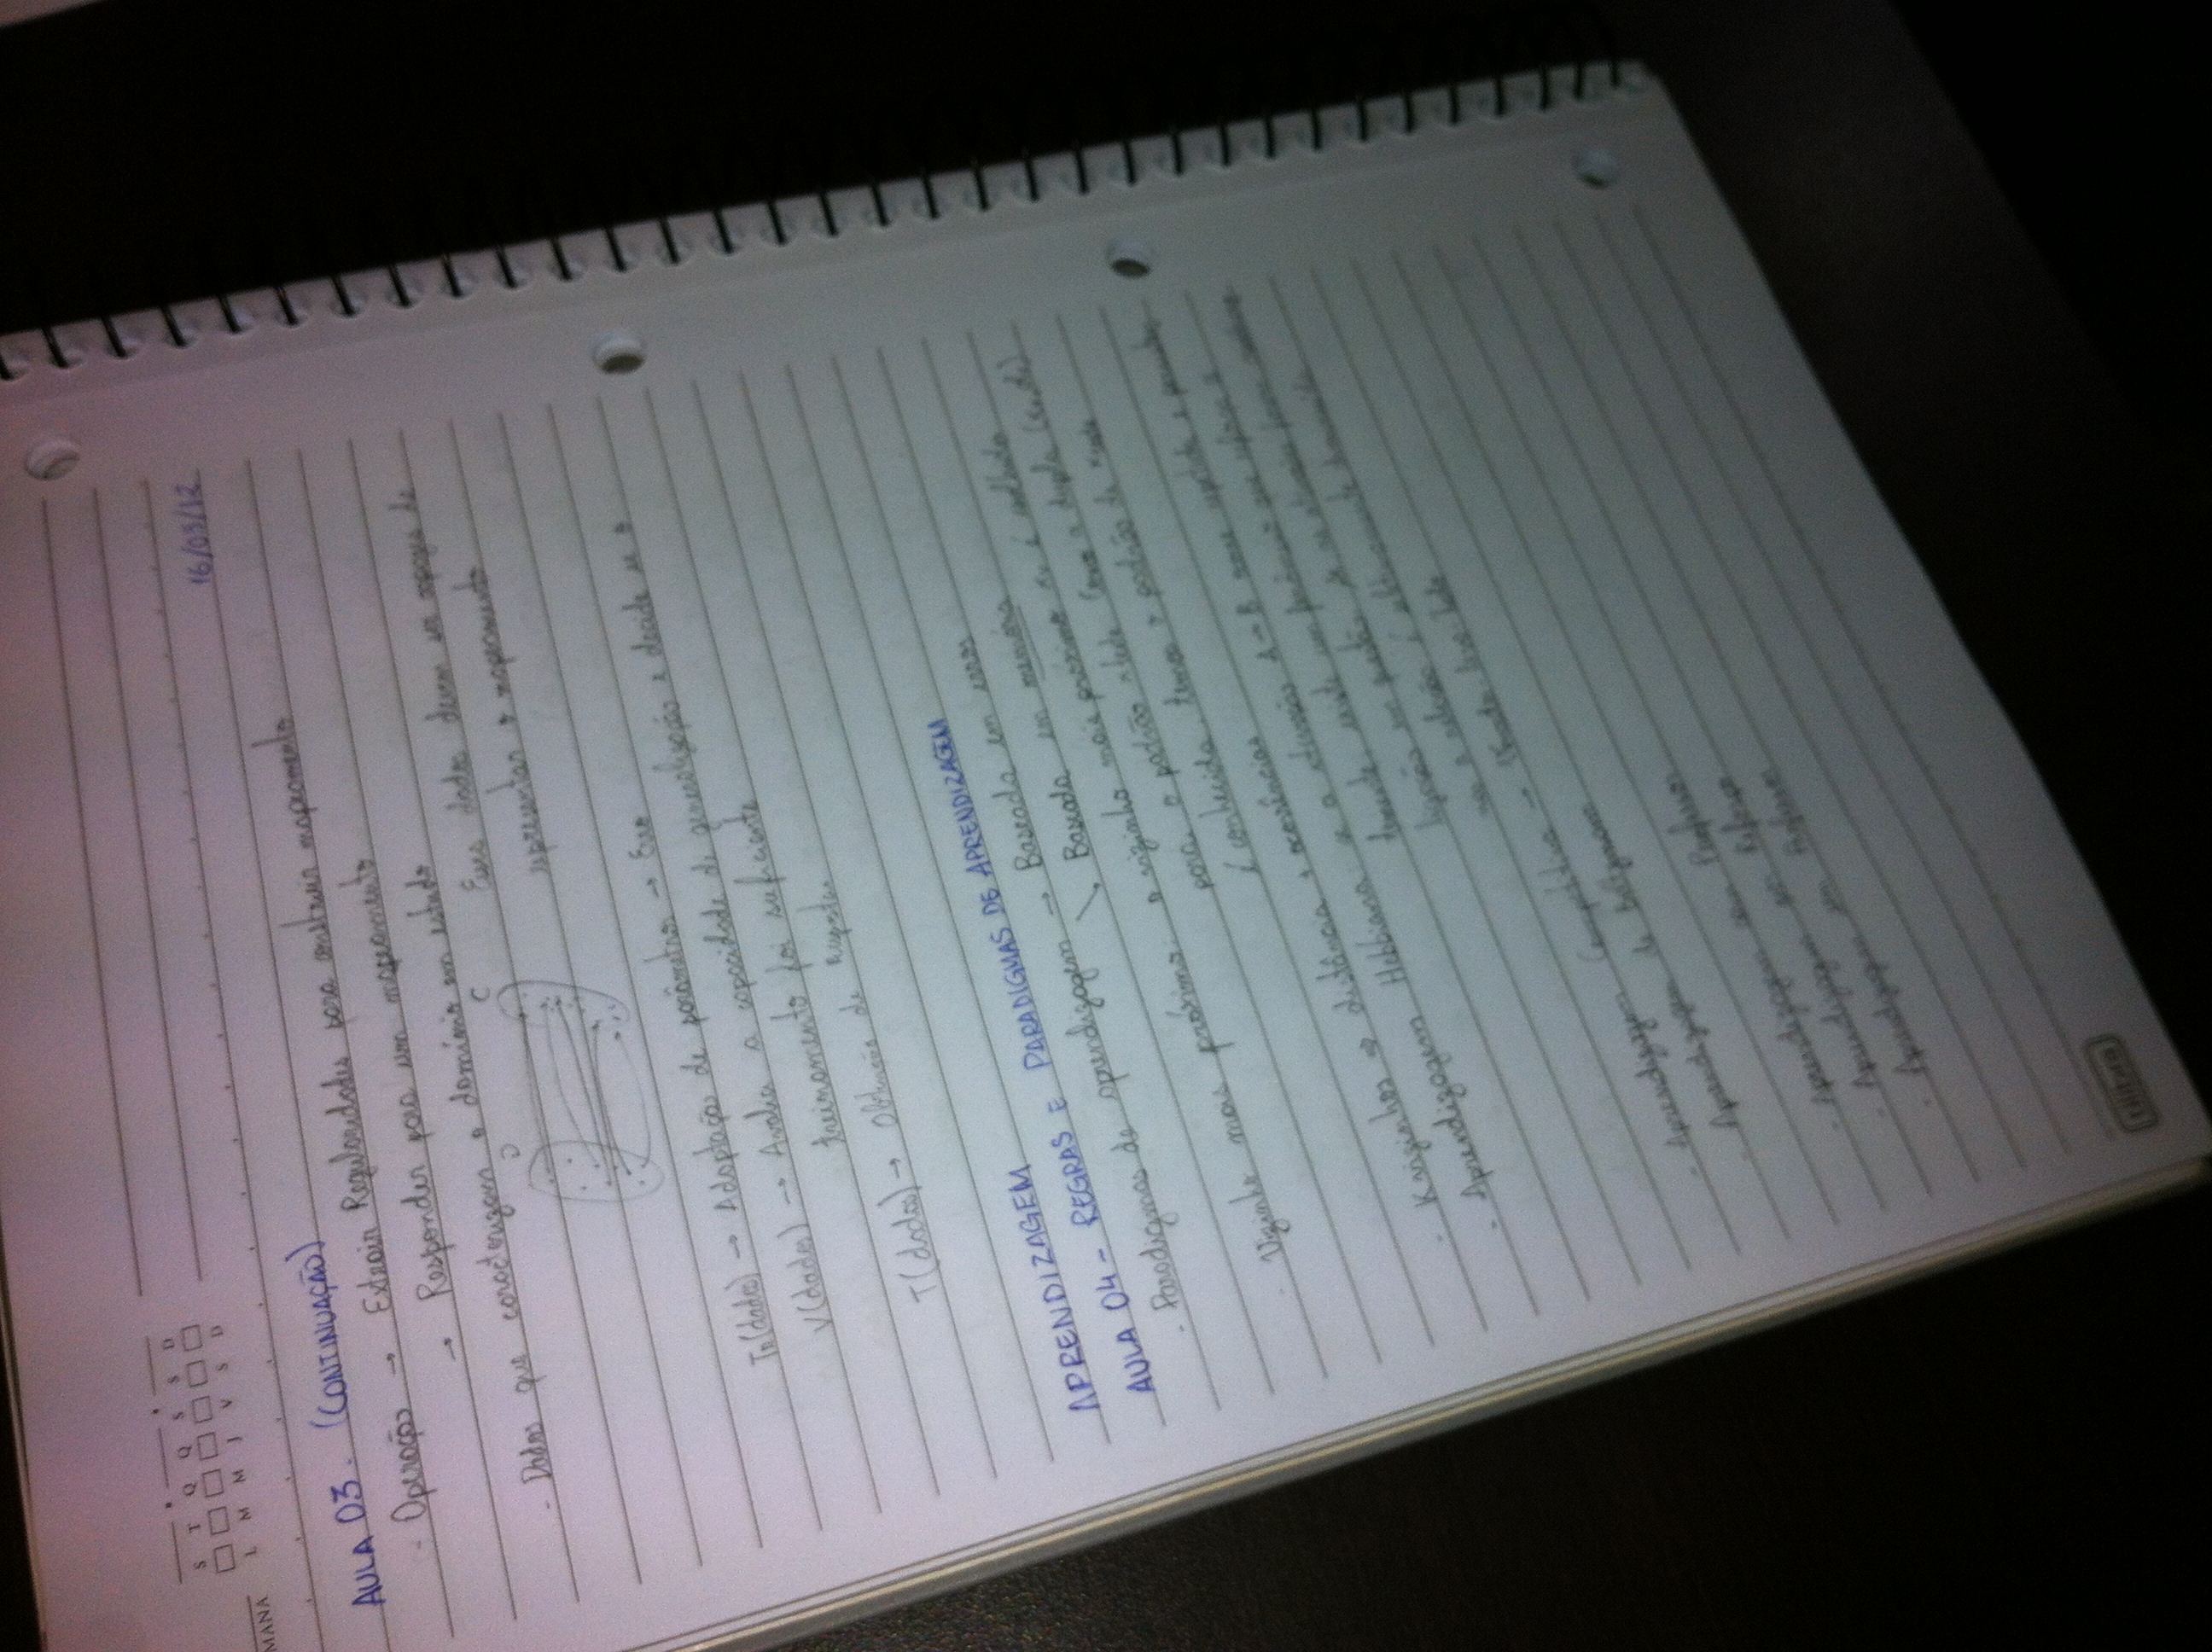 S T Q Q S S D
L M M J V S D
MANA
16/03/12
AULA 03. (CONTINUAÇÃO)
- Operação → Extrair Regularidades para construir mapeamento
→ Responder para um mapeamento
- Dados que caracterizam o domínio em estudo
D C
Esses dados devem ser capazes de
representar o mapeamento
Tr(dados) → Adaptação de parâmetros → Erro
V(dados) → Avalia a capacidade de generalização e decide se o
treinamento foi suficiente
T(dados) → Obtenção de Respostas
APRENDIZAGEM
AULA 04 - REGRAS E PARADIGMAS DE APRENDIZAGEM
- Paradigmas de aprendizagem → Baseada em erros
↘ Baseada em memória
- Vizinho mais próximo: o vizinho mais próximo é escolhido
para o padrão Como a dupla
é conhecida, temos o padrão de
- K vizinhos ⇒ distância + ocorrências
- Aprendizagem Hebbiana: se a ativação A → B ocorre repetida e persisten
temente, existe um fenômeno que reforça a
ligação em questão, se as
a relação é diminuída
- Aprendizagem Competitiva →
- Aprendizagem de Boltzmann
- Aprendizagem com Professor
- Aprendizagem em Reforço
- Aprendizagem sem Professor
tilibra